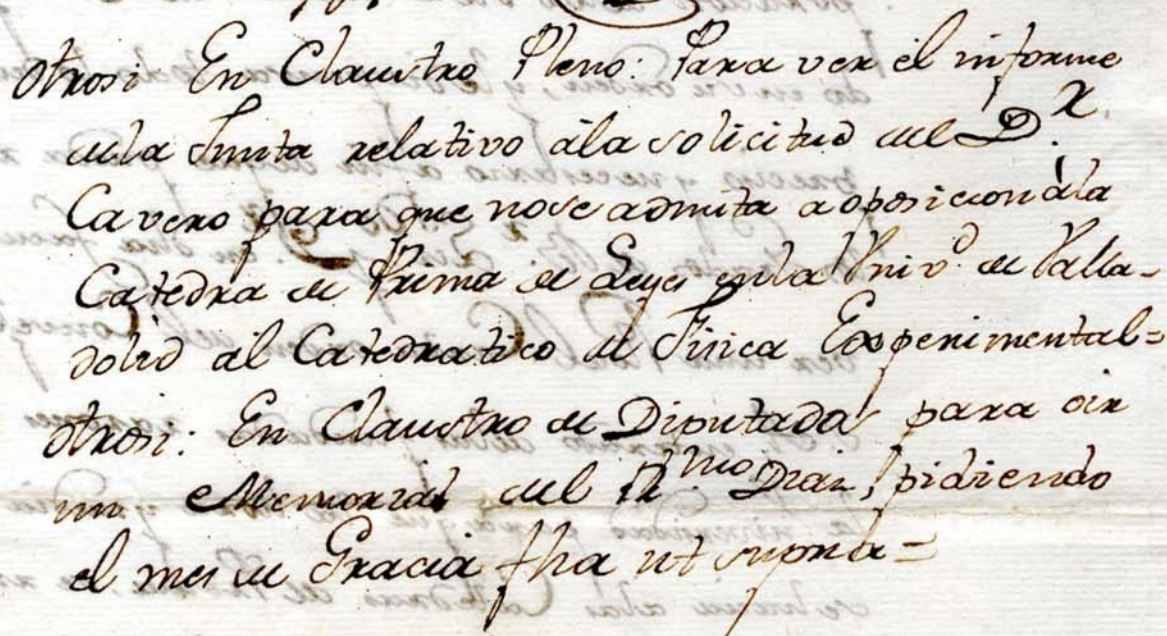 Otrosi En Claustro Pleno: Para ver el informe
dela Junta relativo àla solicitud del D.r
Cavero para que nose admita a oposicion àla
Catedra de Prima de Leyes enla Univ.d de Valla-
dolid al Catedratico de Fisica Experimental=
Otrosi: En Claustro de Diputados para oir
un Memorial del R.mo Diaz, pidiendo
el mes de Gracia fha ut supra=